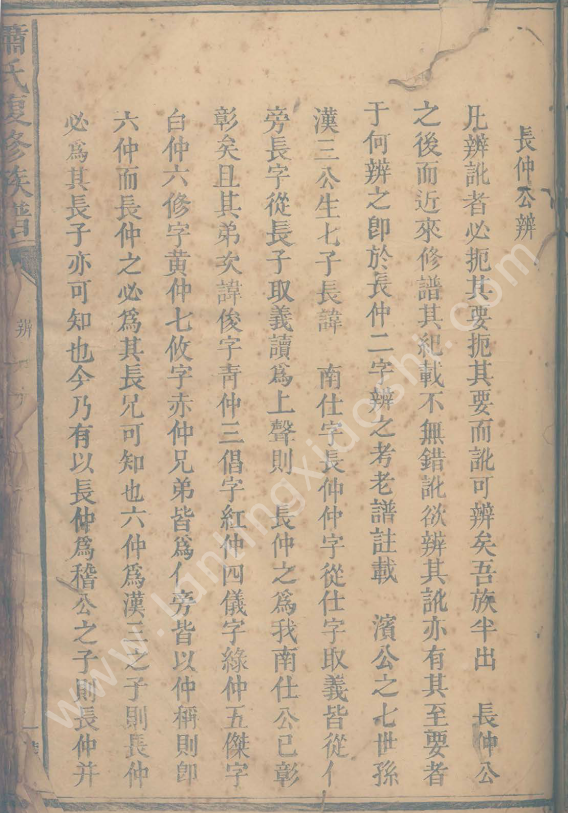 長仲公辨
凡辨訛者必扼其要扼其要而訛可辨矣吾族半出　長仲公
之後而近來修譜其紀載不無錯訛欲辨其訛亦有其至要者
于何辨之卽於長仲二字辨之考老譜註載　濱公之七世孫
漢三公生七子長諱　南仕字長仲仲字從仕字取義皆從亻
旁長字從長子取義讀爲上聲則　長仲之爲我南仕公已彰
彰矣且其弟次諱俊字靑仲三倡字紅仲四儀字綠仲五傑字
白仲六修字黃仲七攸字赤仲兄弟皆爲亻旁皆以仲稱則卽
六仲而長仲之必爲其長兄可知也六仲爲漢三之子則長仲
必爲其長子亦可知也今乃有以長仲爲稽公之子則長仲并
蕭氏復修族譜
辨
www.lanlingxiaoshi.com